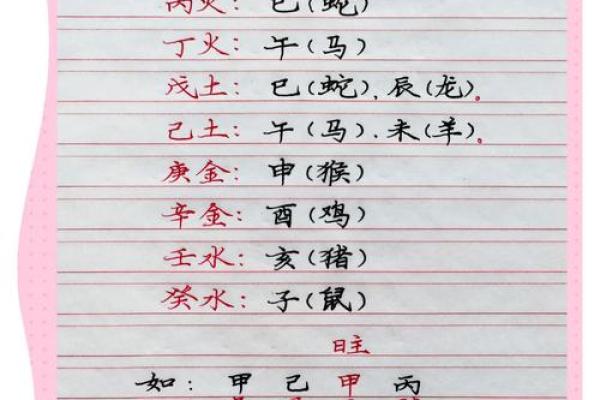 丙火：巳（蛇）
丁火：午（马）
戊土：巳（蛇）、辰（龙）。
己土：午（马）、未（羊）。
庚金：申（猴）
辛金：酉（鸡）
壬水：亥（猪）
癸水：子（鼠）
日主
如：甲 己 甲 丙